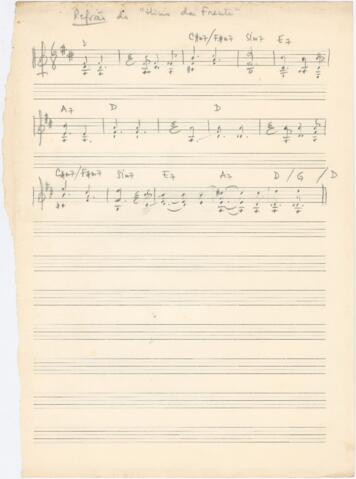 Refrão do "Hino da Frente"
C#m7/F#m7 Sim7 E7
A7 D D
C#m7/F#m7 Sim7 E7 A7 D / G / D